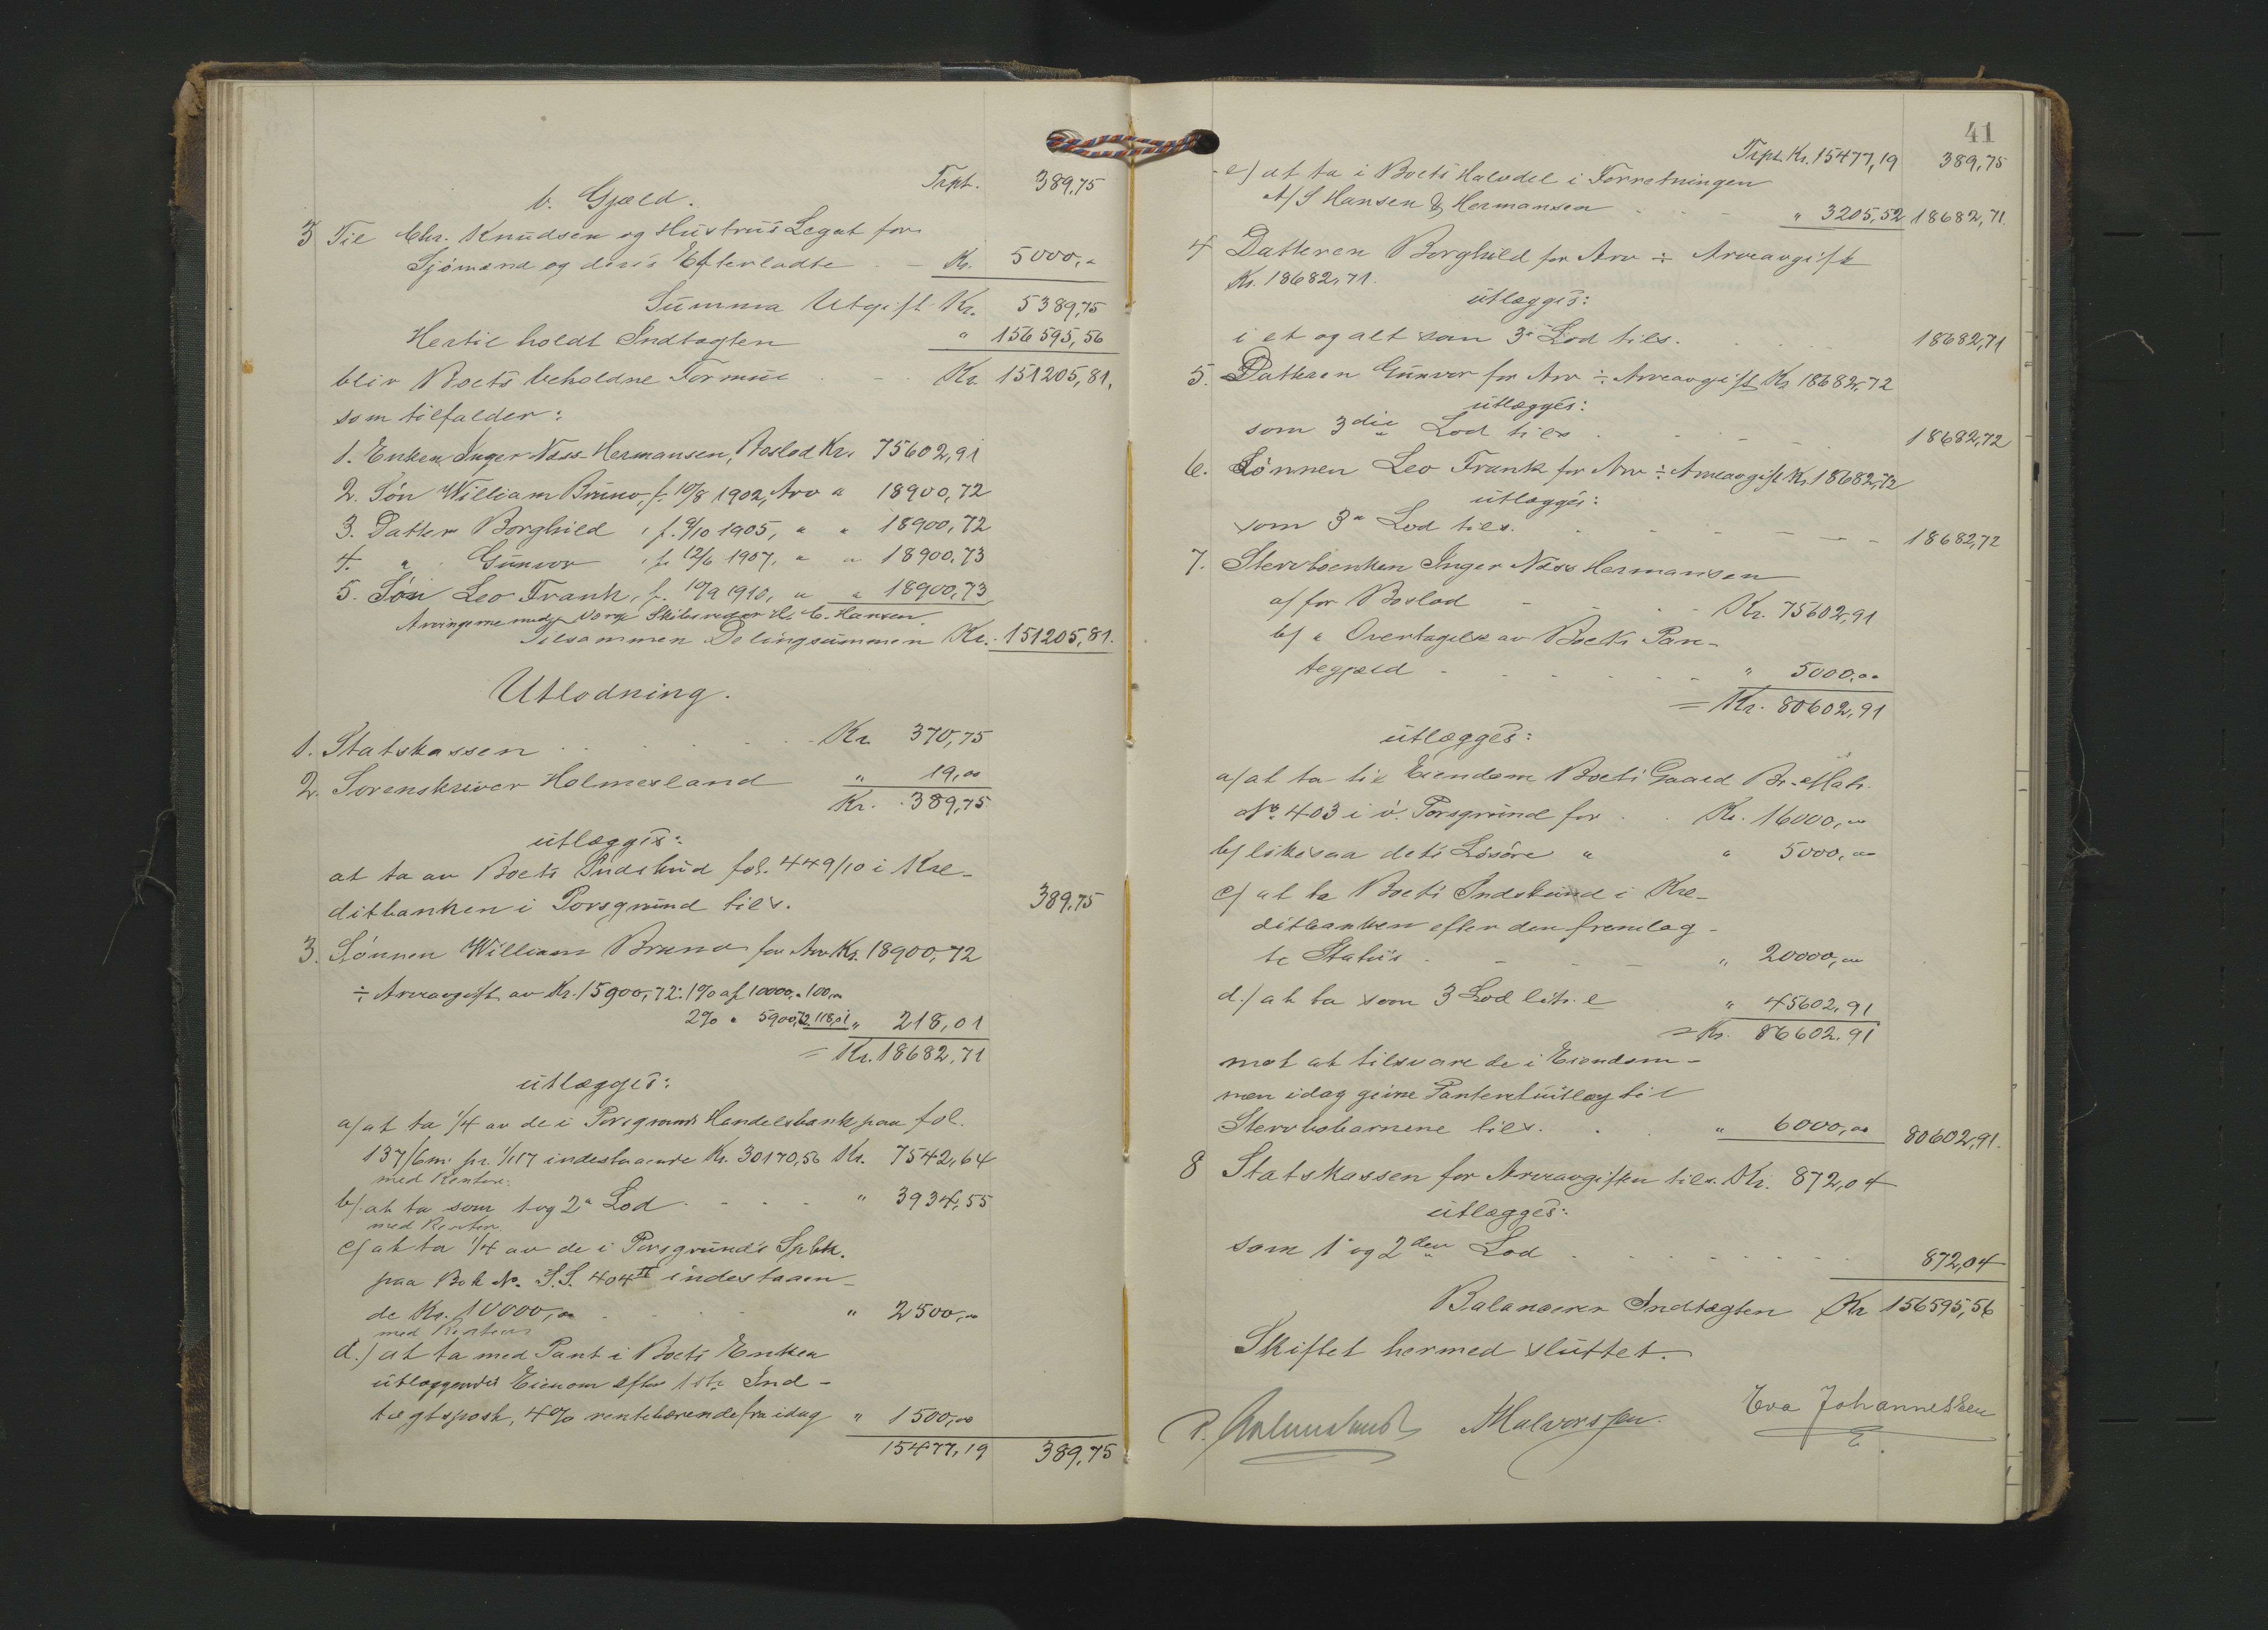 Trpt. 389,75
b. Gjæld.
3 Til Chr. Knudsen og Hustrus Legat for
Sjömænd og deres Efterladte Kr. 5000,"
Summa Utgift Kr. 5389,75
Hertil holdt Indtægten " 156595,56
blir Boets beholdne Formue Kr. 151205,81,
som tilfalder:
1. Enken Inger Næss-Hermansen, Boslod Kr. 75602,91
2. Sön William Bruno, f. 10/8 1902, Arv " 18900,72
3. Datter Borghild, f. 9/10 1905, " " 18900,72
4. " Gunvor, f. 12/6 1907, " " 18900,73
5. Sön Leo Frank, f. 10/9 1910, " " 18900,73
Arvingerne med Verge Skibsreder H. C. Hansen
Tilsammen Delingsummen Kr. 151205,81.
Utlodning.
1. Statskassen Kr. 370,75
2. Sorenskriver Holmesland " 19,00
Kr. 389,75
utlægges:
at ta av Boets Indskud fol. 449/10 i Kre-
ditbanken i Porsgrund tils. 389,75
3. Sönnen William Bruno for Arv Kr. 18900,72
÷ Arveavgift av Kr. 15900,72: 1% af 10000," 100,00
2% " 5900,72 118,01 " 218,01
= Kr. 18682,71
utlægges:
a/ at ta 1/4 av de i Porsgrunds Handelsbank paa fol.
137/6m. pr. 1/1 17 indestaaende Kr. 30170,56 Kr. 7542,64
med Renter.
b/ at ta som 1 og 2" Lod " 3934,55
med Renter.
c/ at ta 1/4 av de i Porsgrund's Spbk.
paa Bok No. S.S. 404 II indestaaen-
de Kr. 10000,00 " 2500,00
med Renter
d.) at ta med Pant i Boets Enken
utlæggendes Eienom efter 1ste Ind-
tægtspost, 4% rentebærende fra idag " 1500,00
15477,19 389,75
41
Trpt. Kr. 15477,19 389,75
e) at ta i Boets Halvdel i Forretningen
A/S Hansen & Hermansen " 3205,52 18682,71.
4 Datteren Borghild for Arv ÷ Arveavgift
Kr. 18682,71.
utlægges:
i et og alt som 3" Lod tils. 18682,71
5. Datteren Gunvor for Arv ÷ Arveavgift Kr. 18682,72
utlægges:
som 3die Lod tils 18682,72
6. Sönnen Leo Frank for Arv ÷ Arveavgift Kr. 18682,72
utlægges:
som 3" Lod tils. 18682,72
7. Stervboenken Inger Næss Hermansen
a/ for Boslod Kr. 75602,91
b/ " Overtagelse av Boets Pan-
tegjæld " 5000,00
= Kr. 80602,91
utlægges:
a/ at ta til Eiendom Boets Gaard Br. Matr.
No. 403 i ö. Porsgrund for Kr. 16000,00
b/ likesaa dets Lösöre " " 5000,00
c/ at ta Boets Indskud i Kre-
ditbanken efter den fremlag-
te Status " 20000,00
d.) at ta som 3 Lod litr. e " 45602,91
= Kr. 86602,91
mot at tilsvare de i Eiendom-
men idag givne Panteretutlæg til
Stervbobarnene tils. " 6000,00 80602,91.
8 Statskassen for Arveavgiften tils. Kr. 872,04
utlægges:
som 1" og 2den Lod 872,04
Balancerer Indtægten Kr 156595,56
Skiftet hermed sluttet.
Halvorsen. Eva Johannessen
E.